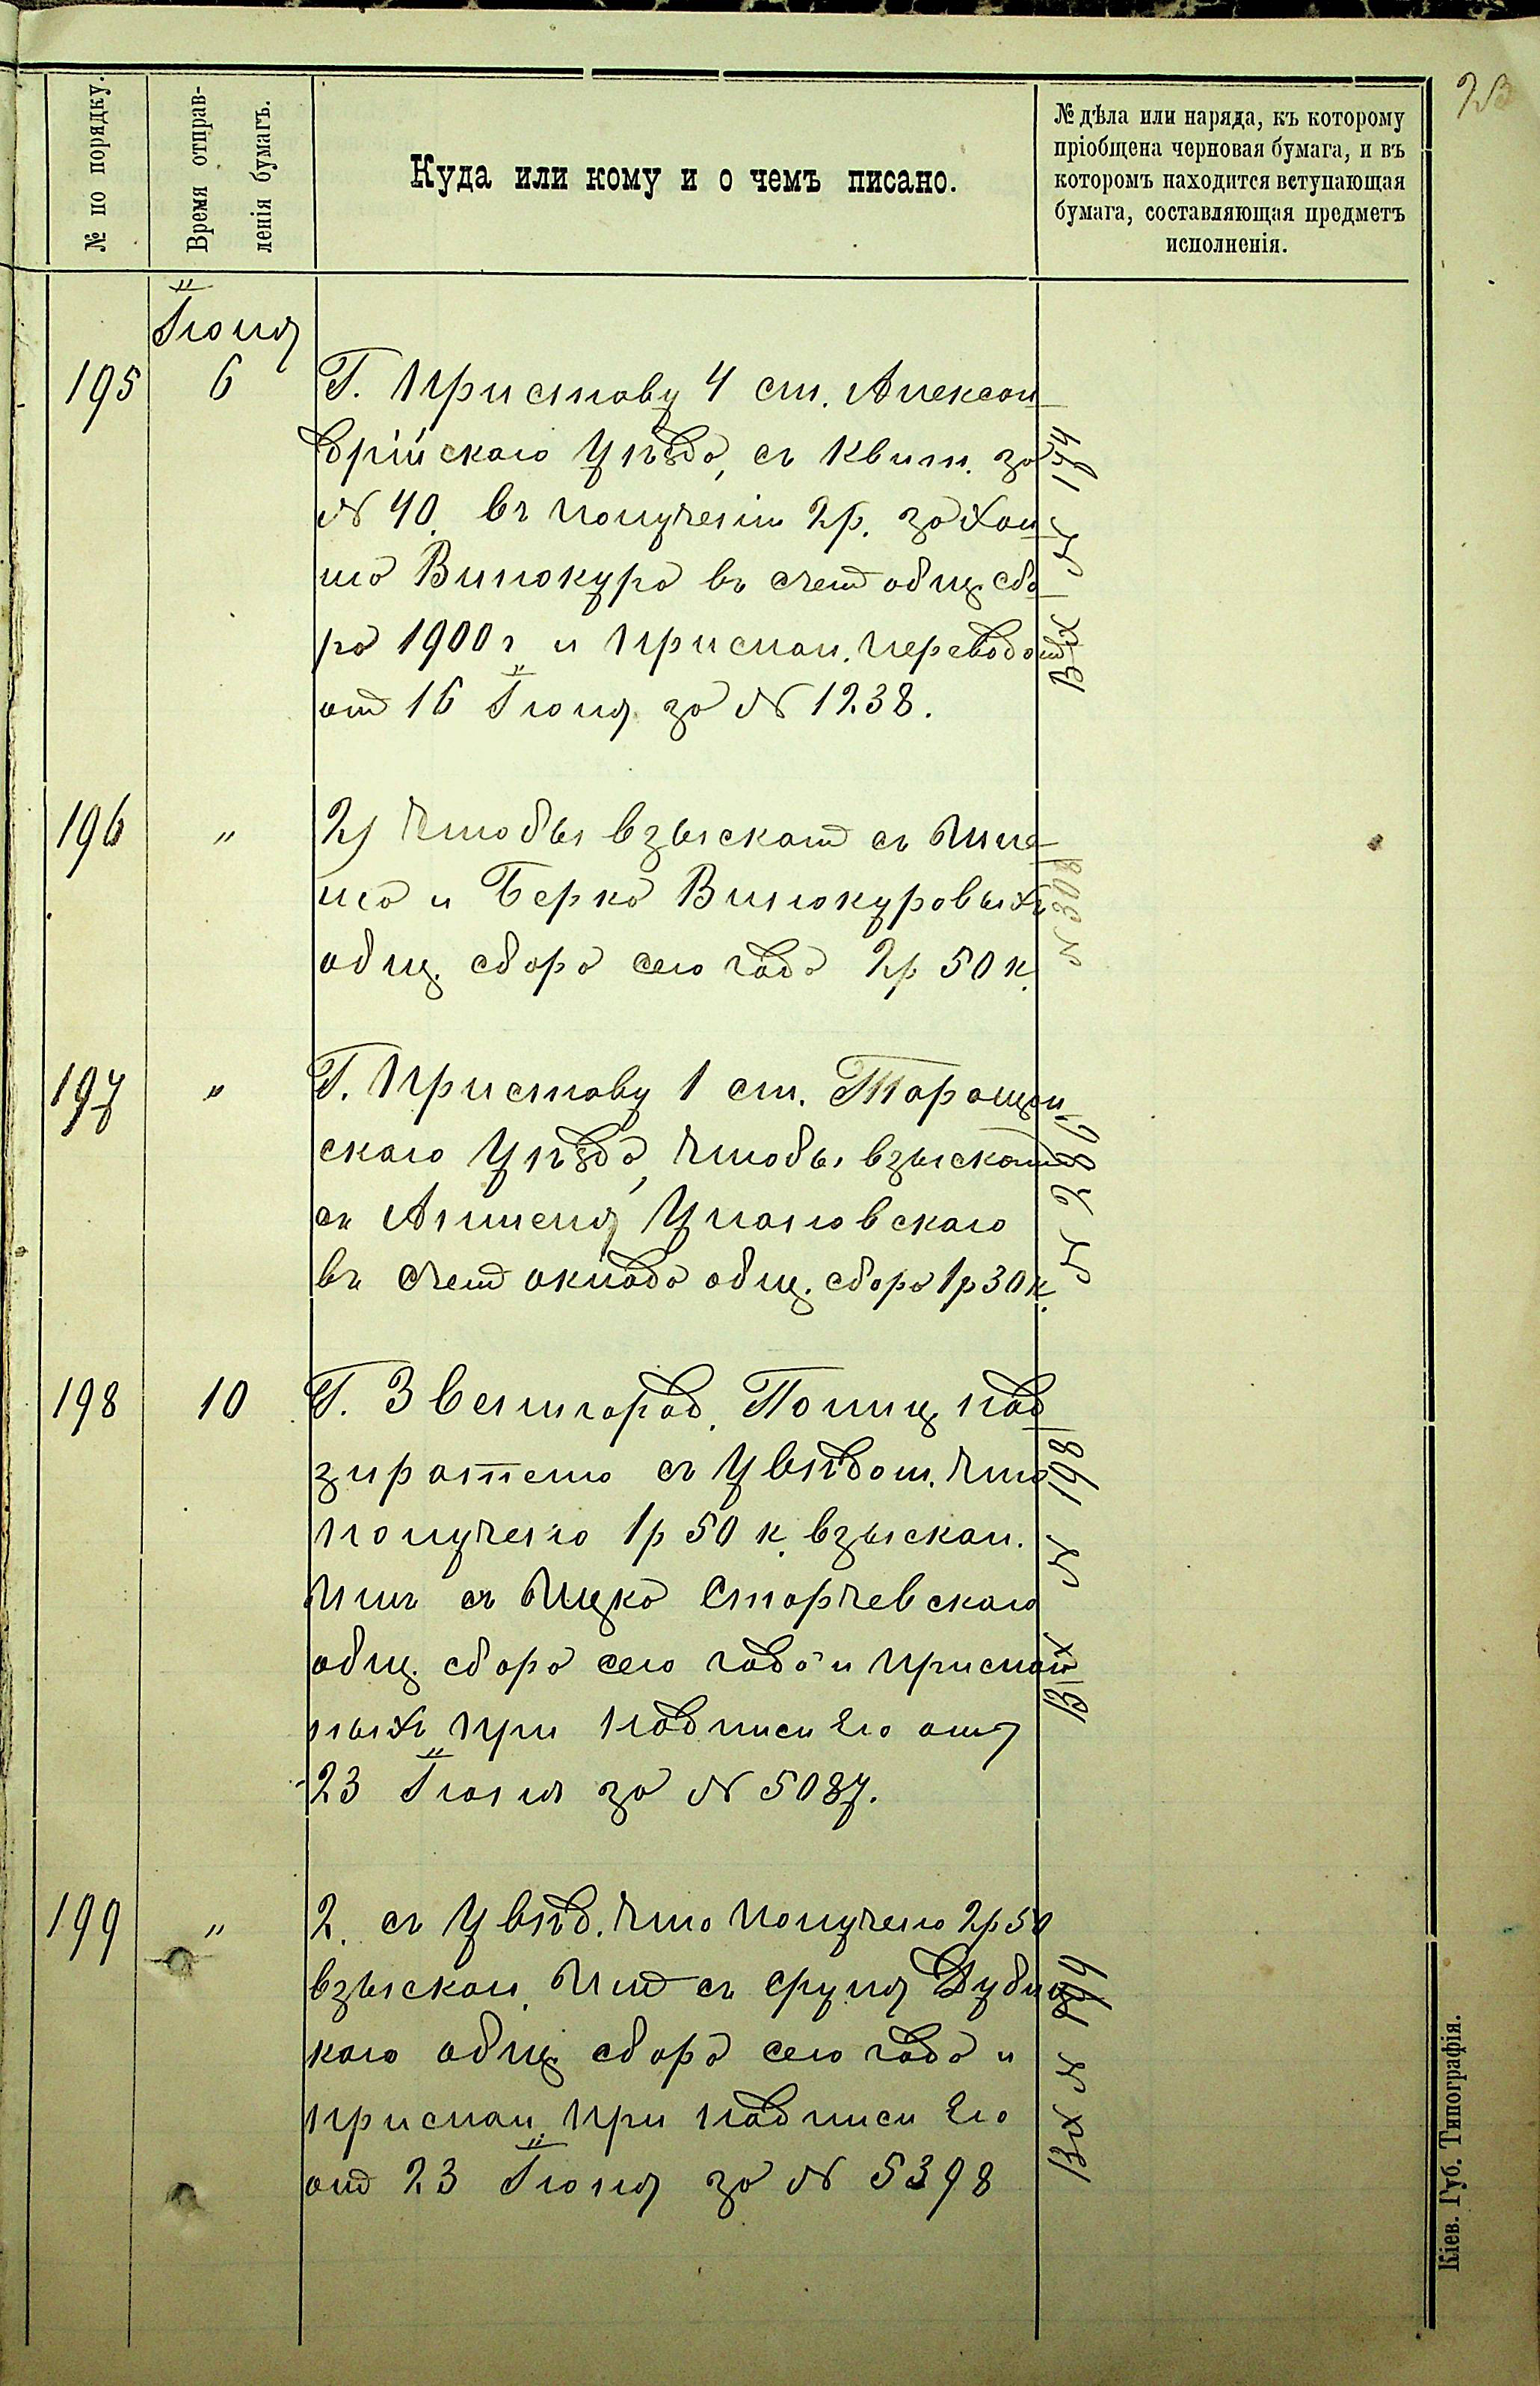 23
№ по порядку.
Время отправ-
ленія бумагъ.
Куда или кому и о чемъ писано.
№ дѣла или наряда, къ которому
пріобщена черновая бумага, и въ
которомъ находится вступающая
бумага, составляющая предметъ
исполненія.
Іюля
195
6
Г. Приставу 4 ст. Алексан
дрійскаго уѣзда, съ квит. за
№ 40. въ полученіи 2р. за
Винокура въ счетъ общ. сбо
ра 1900 г и прислан. переводом
от 16 Іюня за № 1238.
Вх № 174
196
"
2) Чтобы взыскать съ
и Берка Винокуровыхъ
общ. сбора сего года 2р 50 к.
№ 308
197
"
Г. Приставу 1 ст. Таращан
скаго уѣзда, чтобы взыскать
съ Аншеля Улановскаго
въ счетъ оклада общ. сбора 1р 30 к.
№ 286
198
10
Г. Звенигород. Полиц. над
зирателю съ увѣдом. что
получено 1р 50 к. взыскан.
Имъ съ Ицка Старчевскаго
общ. сбора сего года и прислан
ныхъ при надписи Его от
23 Іюня за № 5087.
Вх № 198
199
"
2. съ увѣд. что получено 2р 50
взыскан. Им съ Сруля
каго общ. сбора сего года и
прислан. при надписи Его
от 23 Іюня за № 5398
Вх № 199
Кіев. Губ. Типографія.